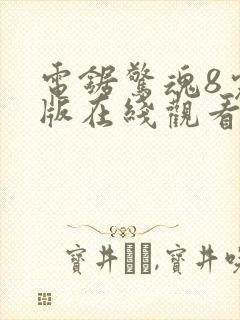 電鋸驚魂8
版在綫觀看
寶井,寶井